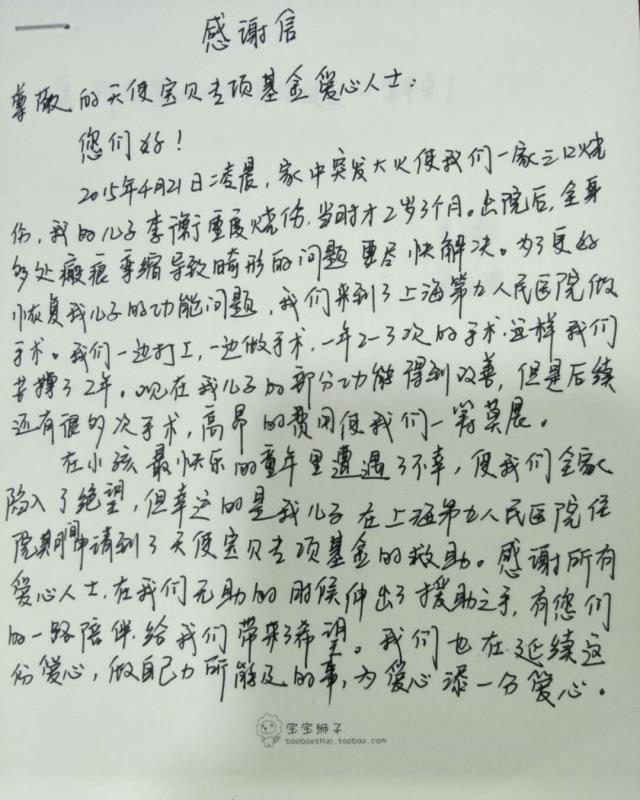 感谢信
尊敬的天使宝贝专项基金爱心人士：
您们好！
2015年4月21日凌晨，家中突发大火使我们一家三口烧
伤，我的儿子李衡重度烧伤，当时才2岁3个月。出院后，全身
多处瘢痕挛缩导致畸形的问题要尽快解决。为了更好
恢复我儿子的功能问题，我们来到了上海第九人民医院做
手术。我们一边打工，一边做手术，一年2-3次的手术。这样我们
苦撑了2年。现在我儿子的部分功能得到改善，但是后续
还有很多次手术，高昂的费用使我们一筹莫展。
在小孩最快乐的童年里遭遇了不幸，使我们全家
陷入了绝望，但幸运的是我儿子在上海第九人民医院住
院期间申请到了天使宝贝专项基金的救助。感谢所有
爱心人士，在我们无助的时候伸出了援助之手，有您们
的一路陪伴，给我们带来了希望。我们也在延续这
份爱心，做自己力所能及的事，为爱心添一分爱心。
宝宝狮子
baobaoshizi.taobao.com